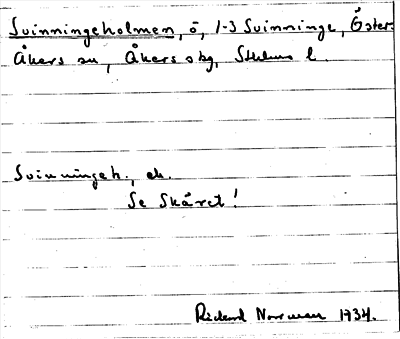 Svinningeholmen, ö, 1-3 Svinninge, Öster-
Åkers sn, Åkers skg, Sthlms l.
Svinningeh., ek.
Se Skäret!
Rickard Norrman 1934.